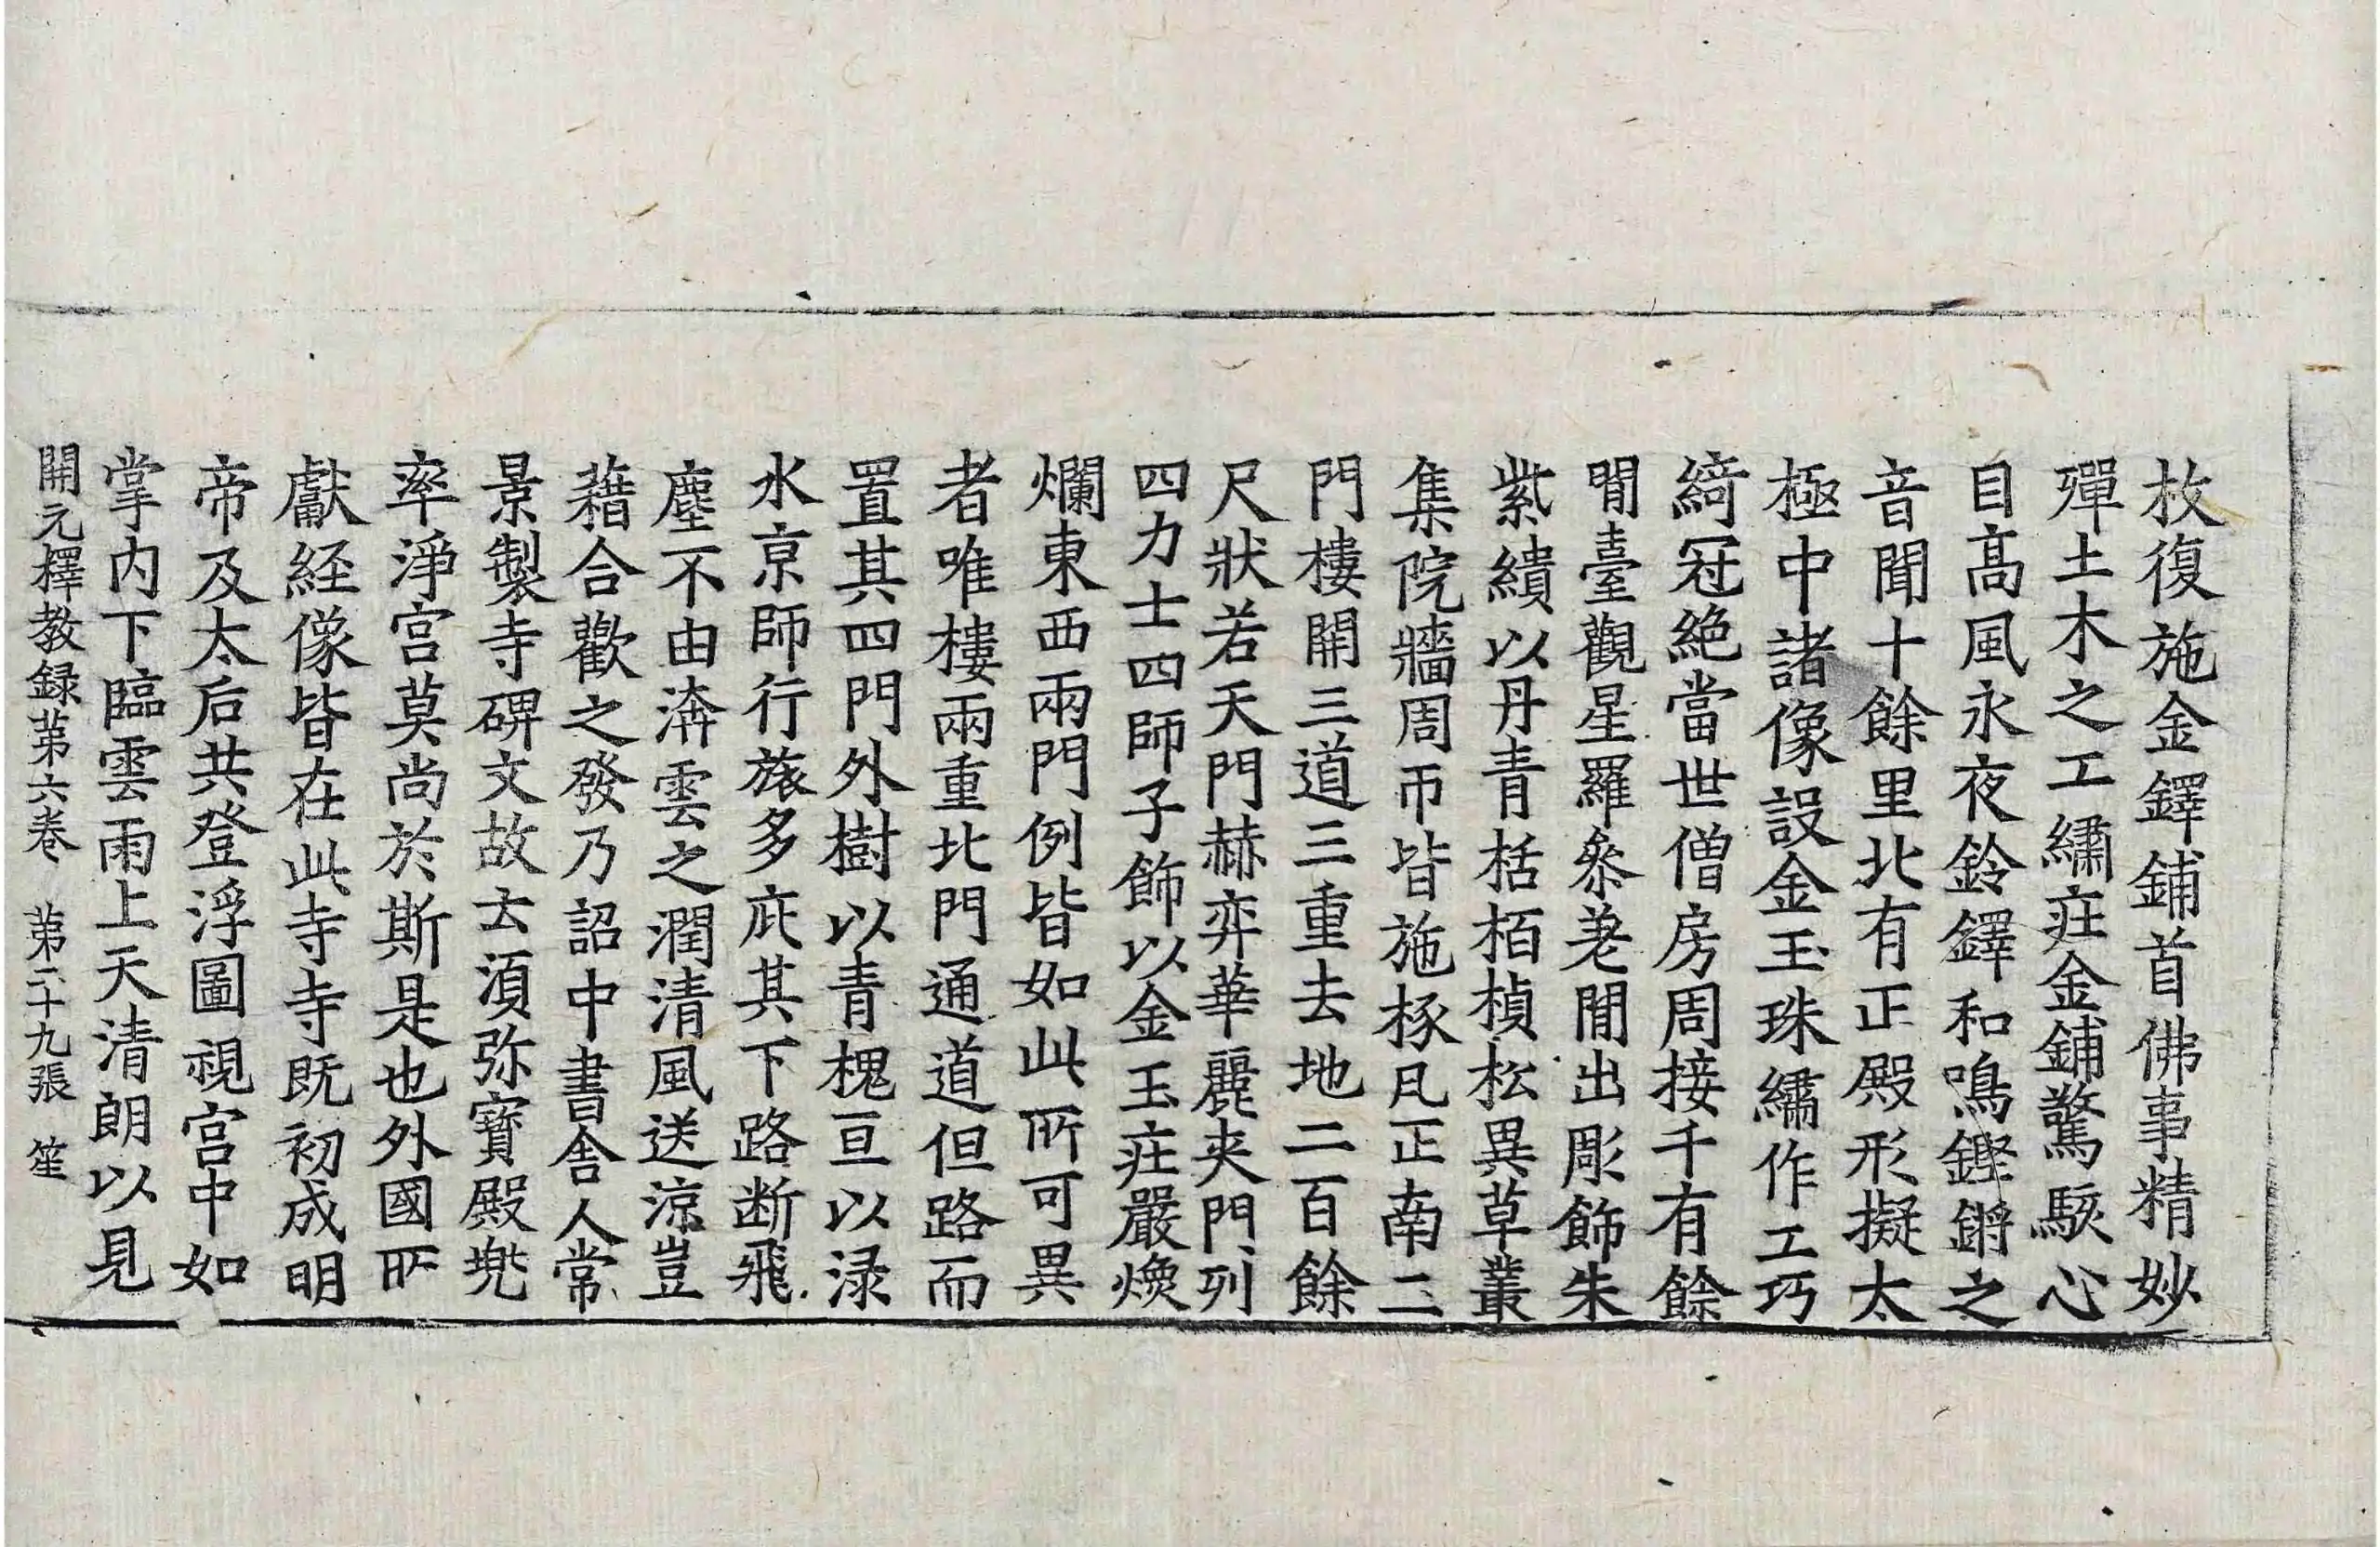 枚復施金鐸鋪首佛事精妙
殫土木之工繡㽵金鋪驚駭心
目高風永夜鈴鐸和鳴鏗鏘之
音聞十餘里北有正殿形擬太
極中諸像設金玉珠繡作工巧
綺冠絶當世僧房周接千有餘
閒臺觀星羅叅差閒出彫飾朱
紫繢以丹青栝栢楨松異草叢
集院牆周帀皆施椽凡正南二
門樓開三道三重去地二百餘
尺狀若天門赫弈華麗夾門列
四力士四師子飾以金玉㽵嚴煥
爛東西兩門例皆如此所可異
者唯樓兩重北門通道但路而
置其四門外樹以青槐亘以渌
水京師行旅多庇其下路断飛
塵不由渰雲之潤清風送涼豈
藉合歡之發乃詔中書舍人常
景製寺碑文故去湏弥寳殿兠
率淨宫莫尚於斯是也外國所
獻経像皆在此寺寺既初成明
帝及太后共登浮圖視宫中如
掌内下臨雲雨上天清朗以見
開元釋教録苐六卷　苐二十九張　笙